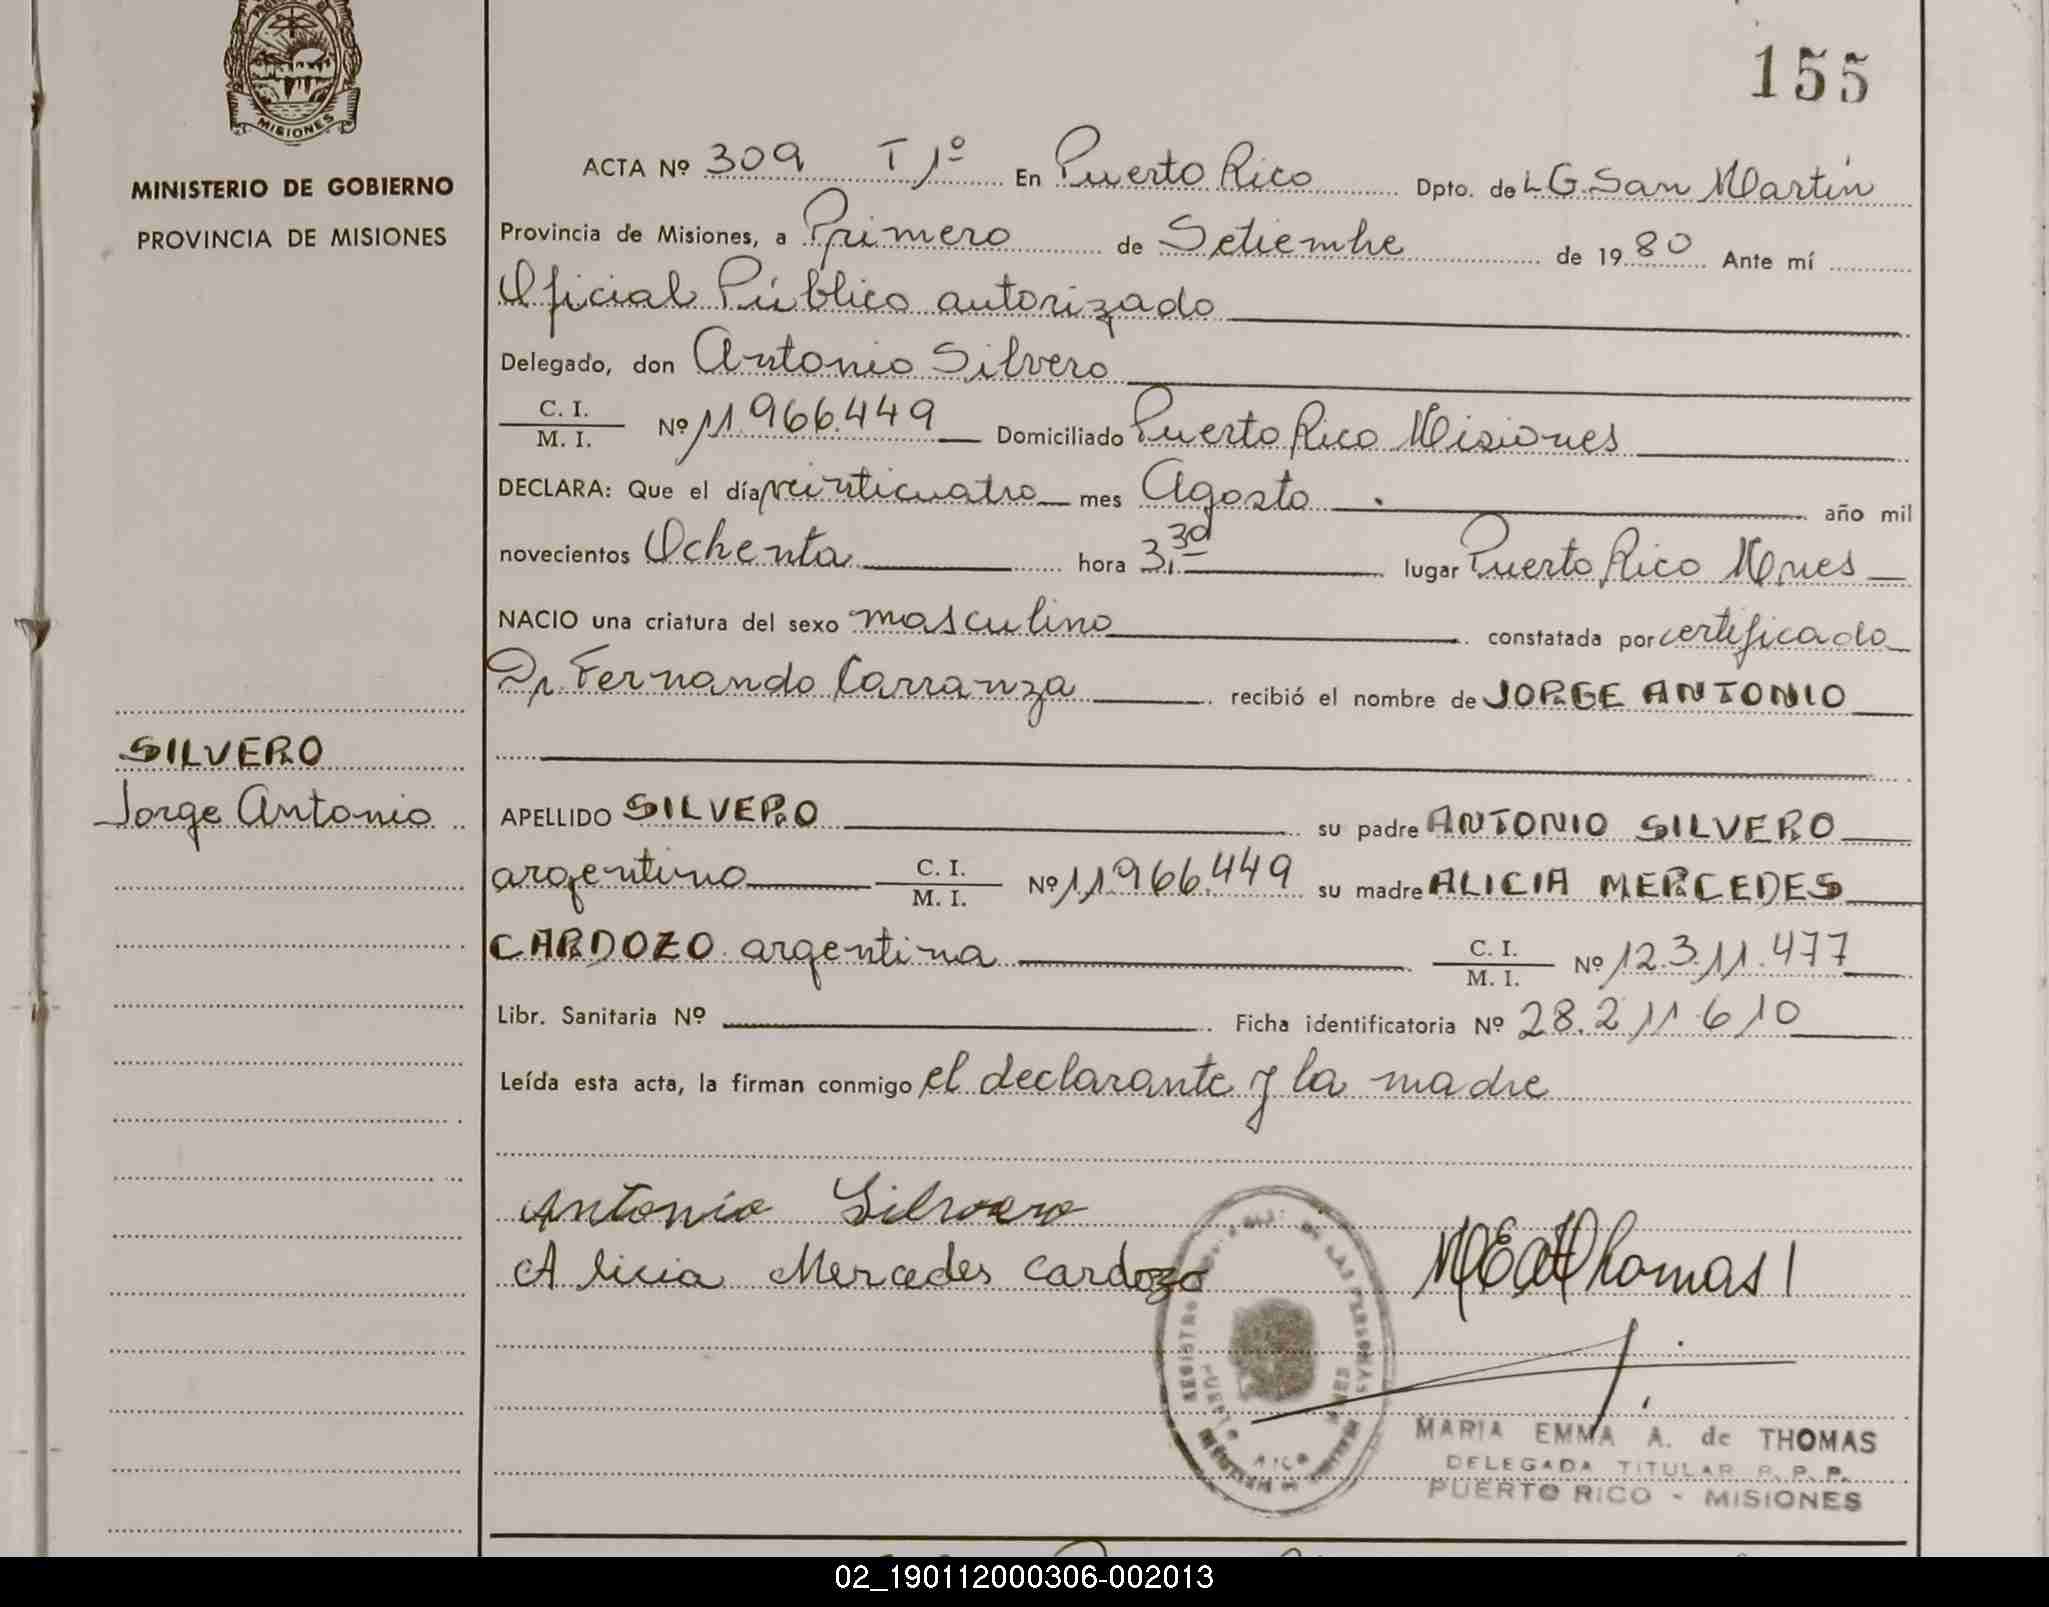 155
MISIONES
MINISTERIO DE GOBIERNO
PROVINCIA DE MISIONES
SILVERO
Jorge Antonio
ACTA Nº 309 T 1º En Puerto Rico Dpto. de L G. San Martín
Provincia de Misiones, a Primero de Setiembre de 1980 Ante mí
Oficial Público autorizado
Delegado, don Antonio Silvero
C. I.
M. I. Nº 11.966.449 Domiciliado Puerto Rico Misiones
DECLARA: Que el día veinticuatro mes Agosto año mil
novecientos Ochenta hora 3,30 lugar Puerto Rico Mnes
NACIO una criatura del sexo masculino constatada por certificado
Dr. Fernando Carranza recibió el nombre de JORGE ANTONIO
APELLIDO SILVERO su padre ANTONIO SILVERO
argentino C. I.
M. I. Nº 11.966.449 su madre ALICIA MERCEDES
CARDOZO argentina C. I.
M. I. Nº 12.311.477
Libr. Sanitaria Nº Ficha identificatoria Nº 28.211.610
Leída esta acta, la firman conmigo el declarante y la madre
Antonio Silvero
Alicia Mercedes Cardozo
MEAThomas
MARIA EMMA A. de THOMAS
DELEGADA TITULAR R. P. P.
PUERTO RICO - MISIONES
02_190112000306-002013